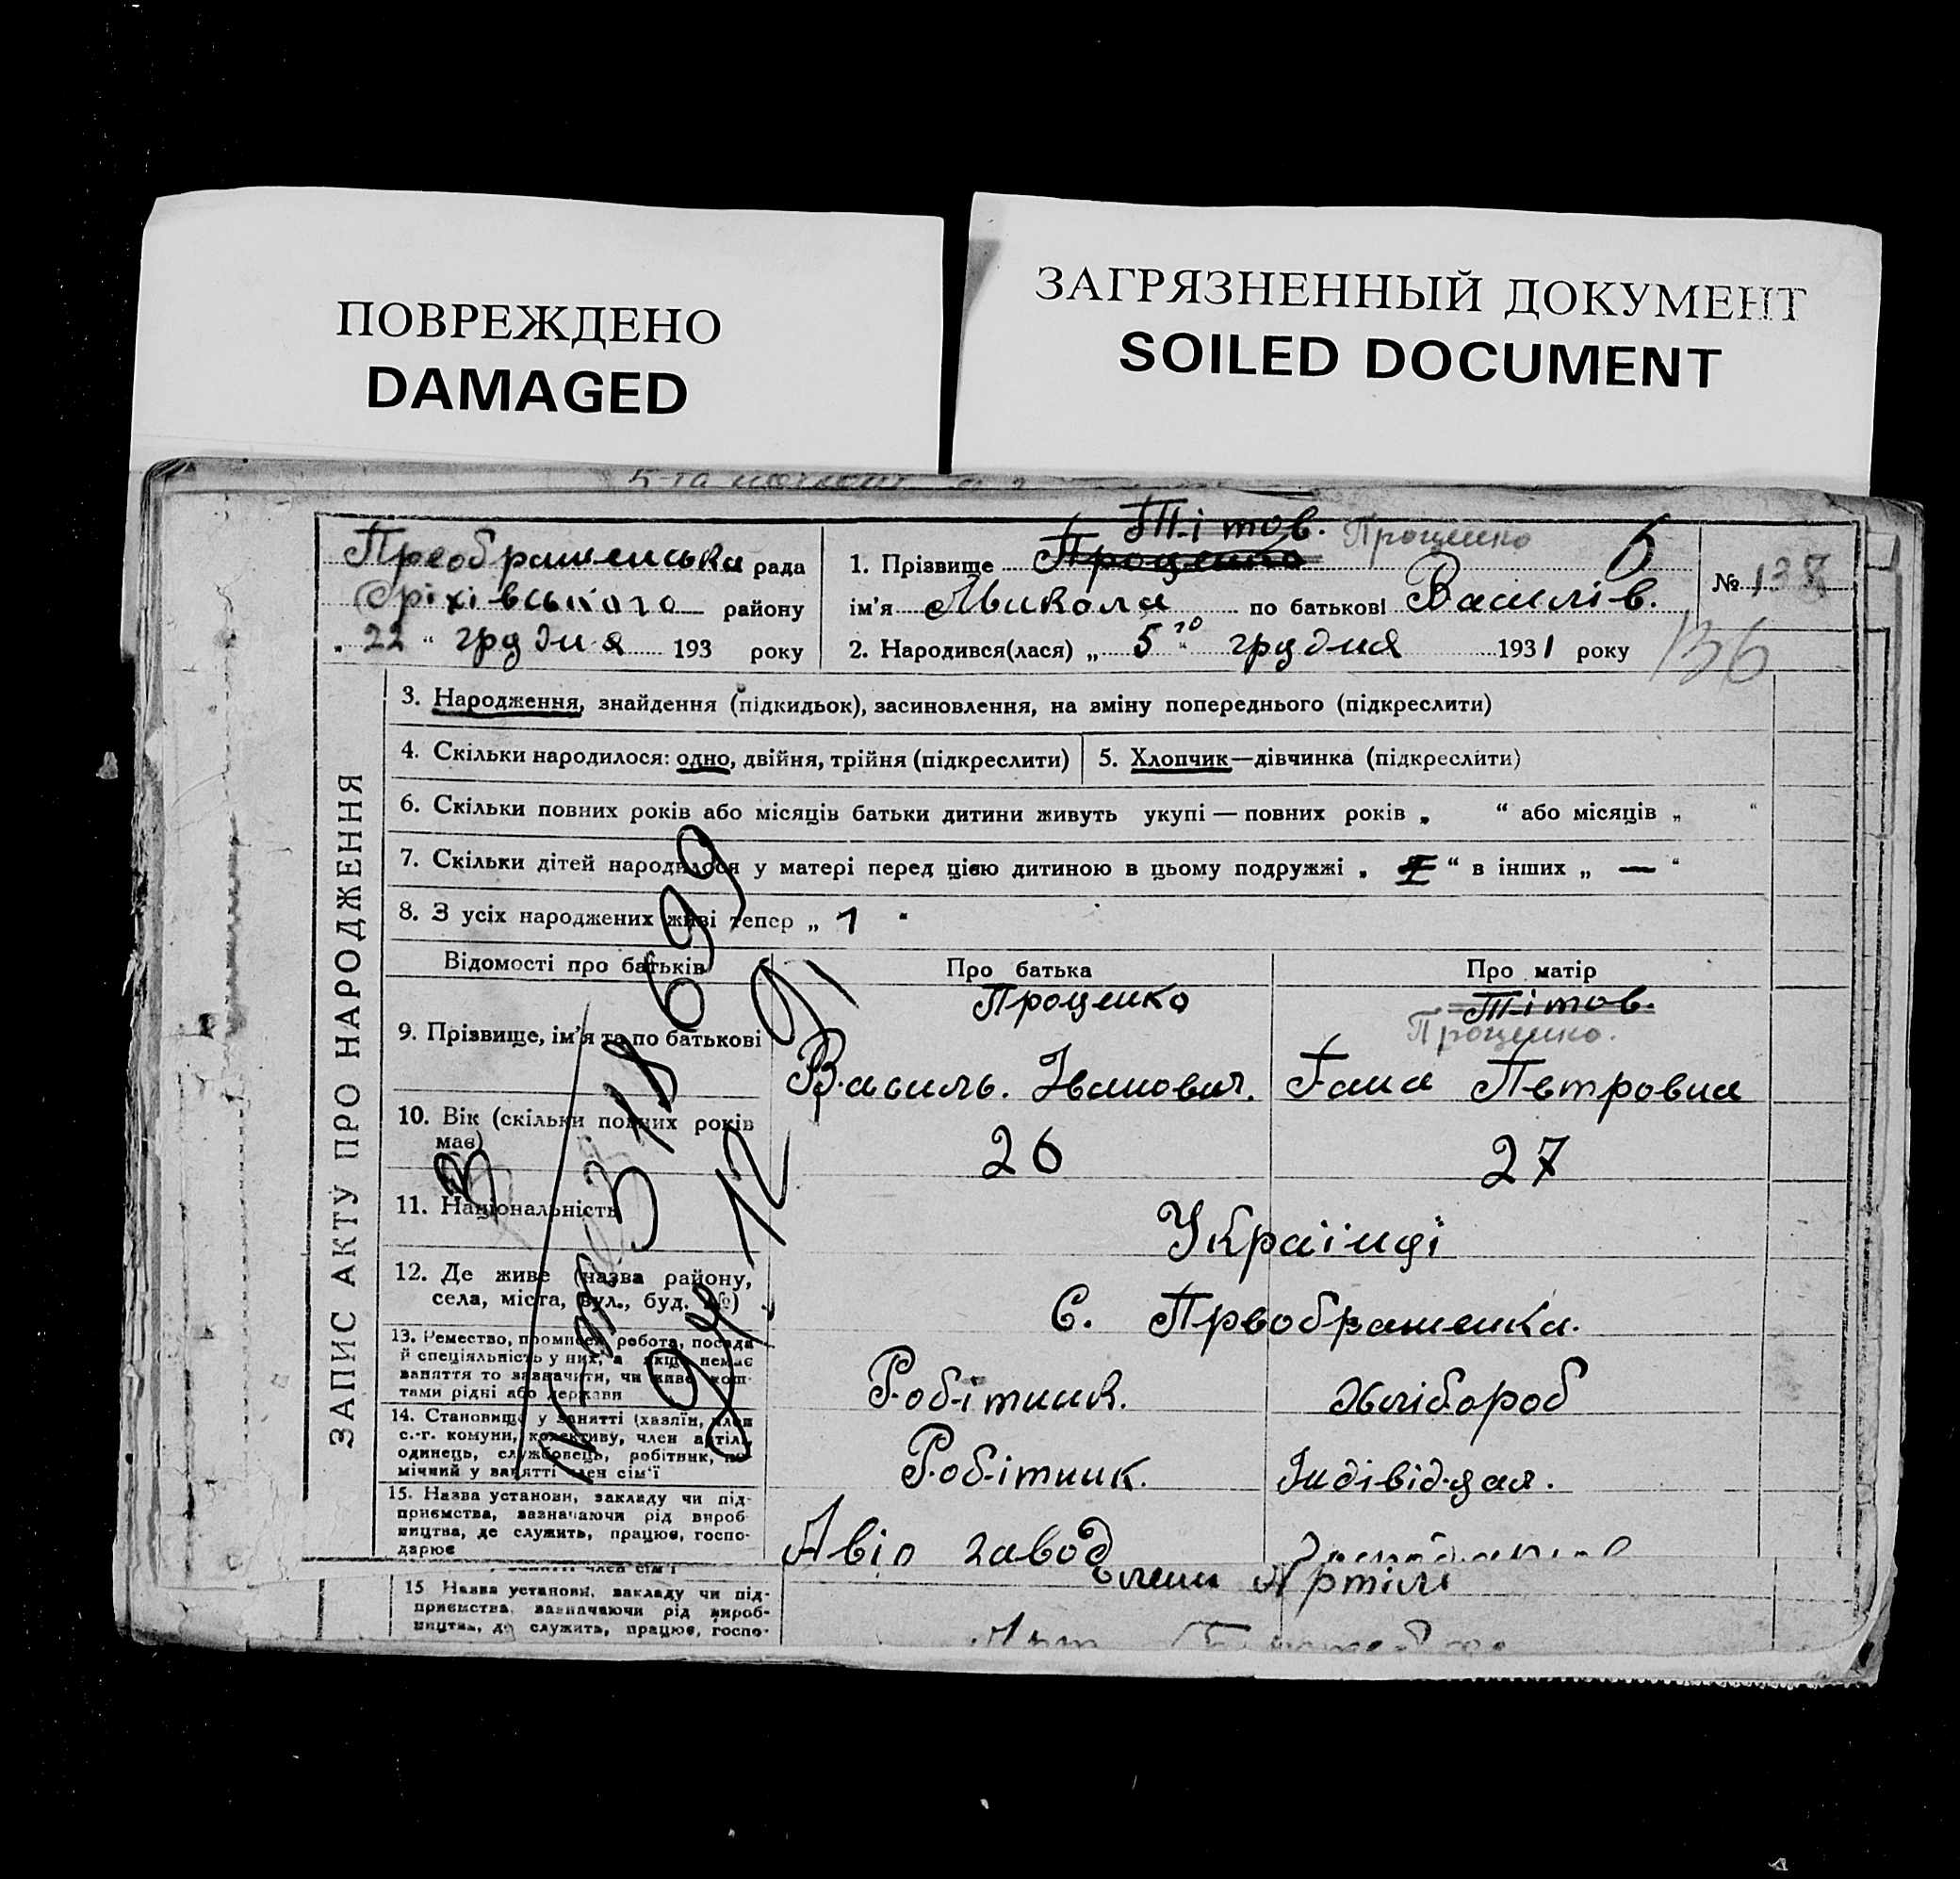 ПОВРЕЖДЕНО
DAMAGED
ЗАГРЯЗНЕННЫЙ ДОКУМЕНТ
SOILED DOCUMENT
5-та
Преображенська рада
Оріхівського району
„ 22 “ грудня 193 року
Тітов. Проценко
1. Прізвище Проценко
ім'я Микола по батькові Василів.
2. Народився(лася) „ 5го “ грудня 1931 року
№ 137
136
ЗАПИС АКТУ ПРО НАРОДЖЕННЯ
3. Народження, знайдення (підкидьок), засиновлення, на зміну попереднього (підкреслити)
4. Скільки народилося: одно, двійня, трійня (підкреслити)
5. Хлопчик—дівчинка (підкреслити)
6. Скільки повних років або місяців батьки дитини живуть укупі — повних років „ “ або місяців „ “
7. Скільки дітей народилося у матері перед цією дитиною в цьому подружжі „ “ в інших „ — “
8. З усіх народжених живі тепер „ 1 “
Відомості про батьків
Про батька
Про матір
9. Прізвище, ім'я та по батькові
Проценко
Василь. Іванович.
Тітов.
Проценко.
Гана Петровна
10. Вік (скільки повних років має)
26
27
11. Національність
Українці
12. Де живе (назва району,
села, міста, вул., буд. №)
С. Преображенка.
13. Ремество, промисел, робота, посада
й спеціяльність у них, а якщо немає
заняття то зазначити, чи живе кош-
тами рідні або держави
Робітник.
Хлібороб
14. Становище у занятті (хазяїн, член
с.-г. комуни, колективу, член артілі,
одинець, службовець, робітник, по-
мічний у занятті член сім'ї
Робітник.
Індівідуал.
15. Назва установи, закладу чи під-
приємства, зазначаючи рід вироб-
ництва, де служить, працює, госпо-
дарює
Авіо завод
занятті член сім'ї
15 Назва установи, закладу чи під-
приємства, зазначаючи рід вироб-
ництва, де служить, працює, госпо-
Члени Артілі
318699
12 91